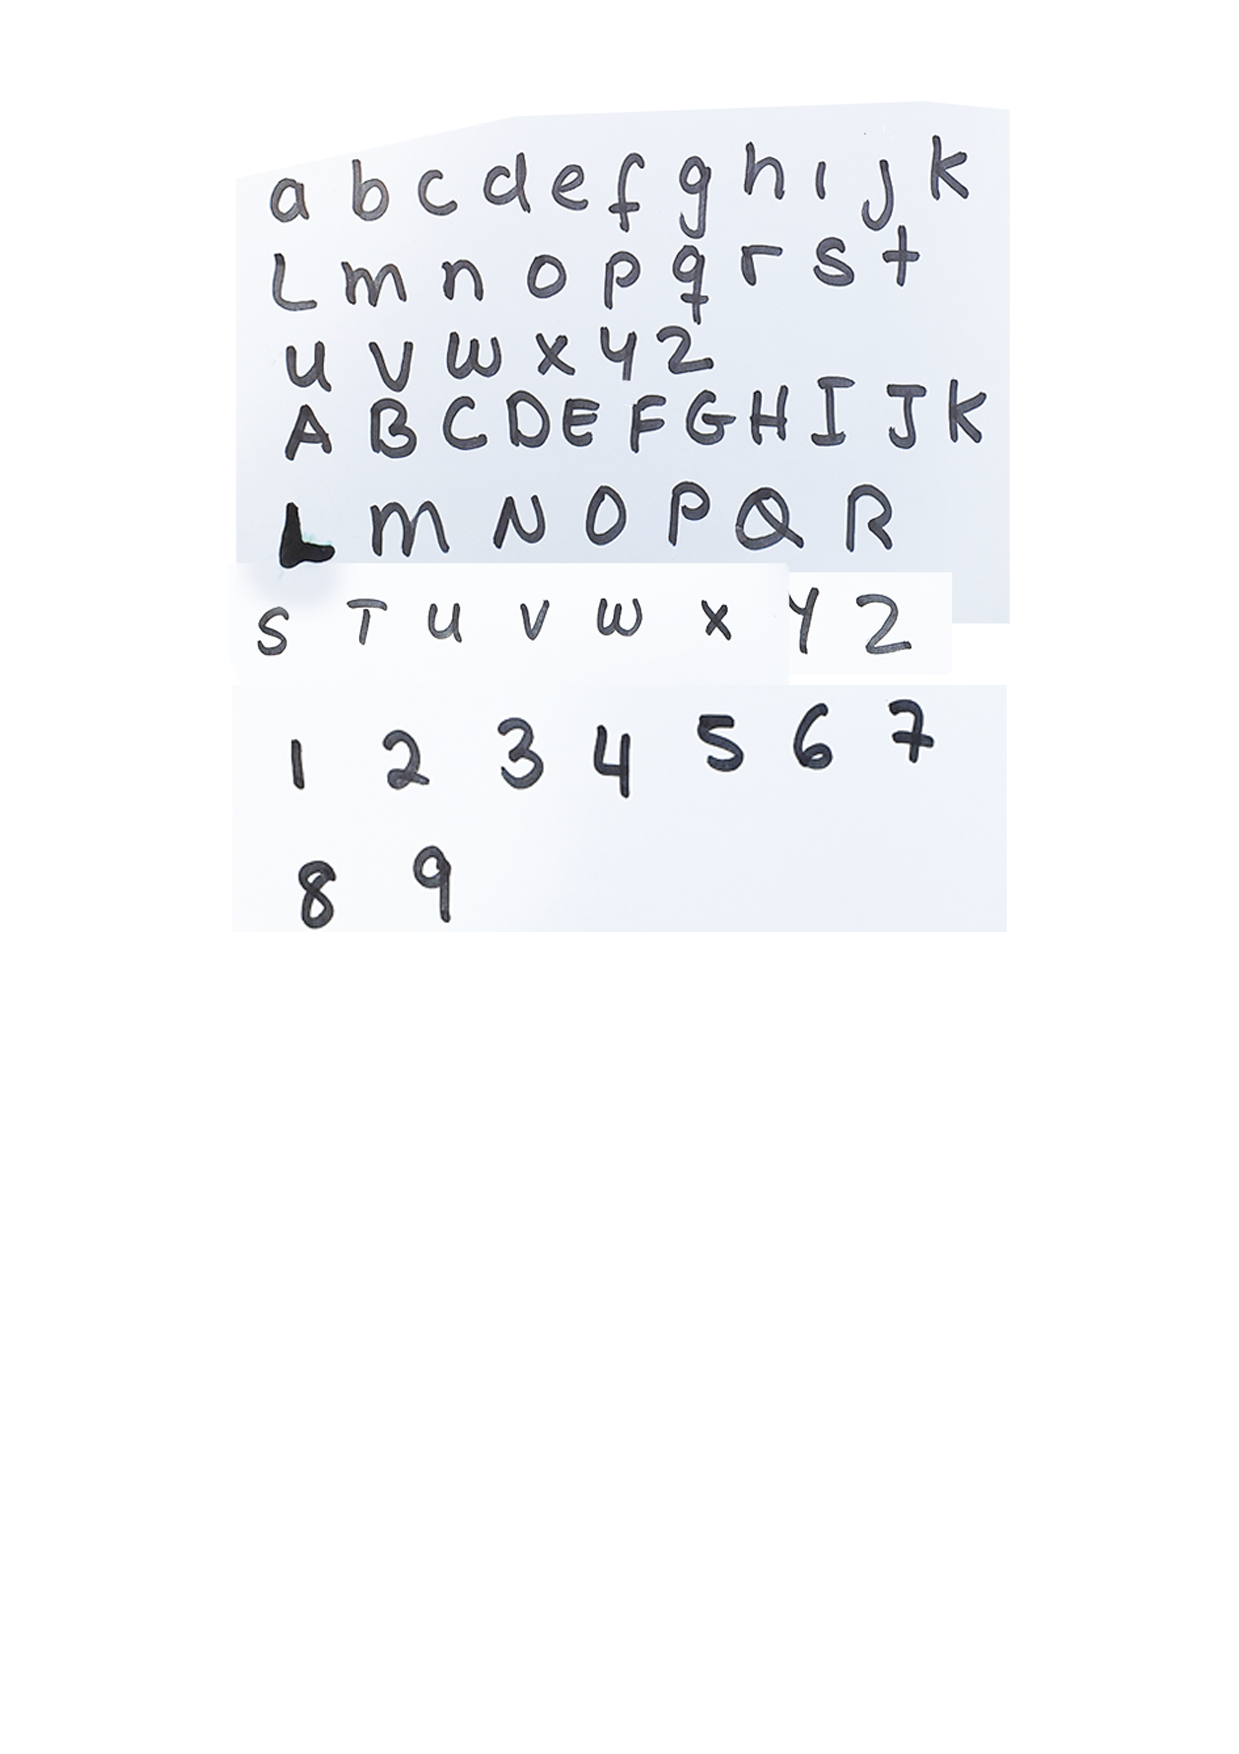 a b c d e f g h ı ȷ k
L m n o p q r s t
u v w x y z
A B C D E F G H I J K
L M N O P Q R
S T U V W X Y Z
1 2 3 4 5 6 7
8 9